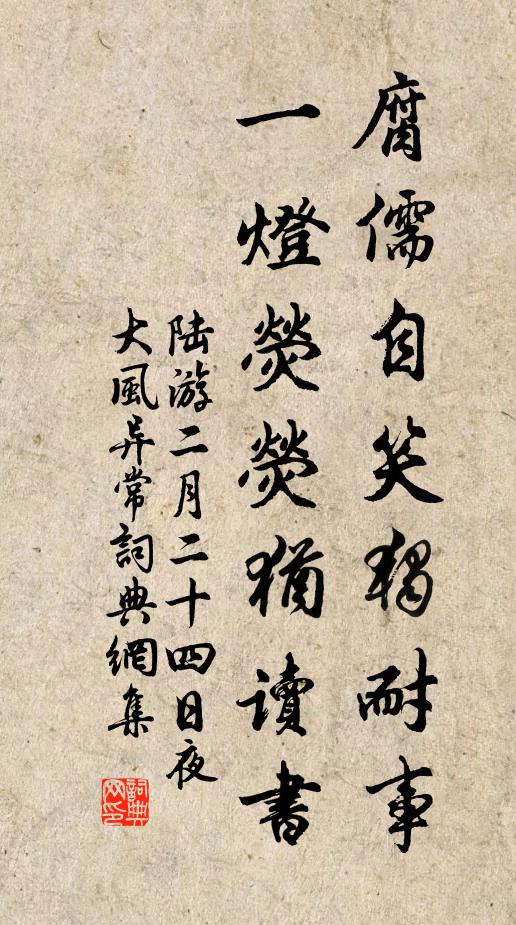 腐儒自笑獨耐事
一燈熒熒猶讀書
陸游二月二十四日夜
大風异常詞典網集
詞典
网印